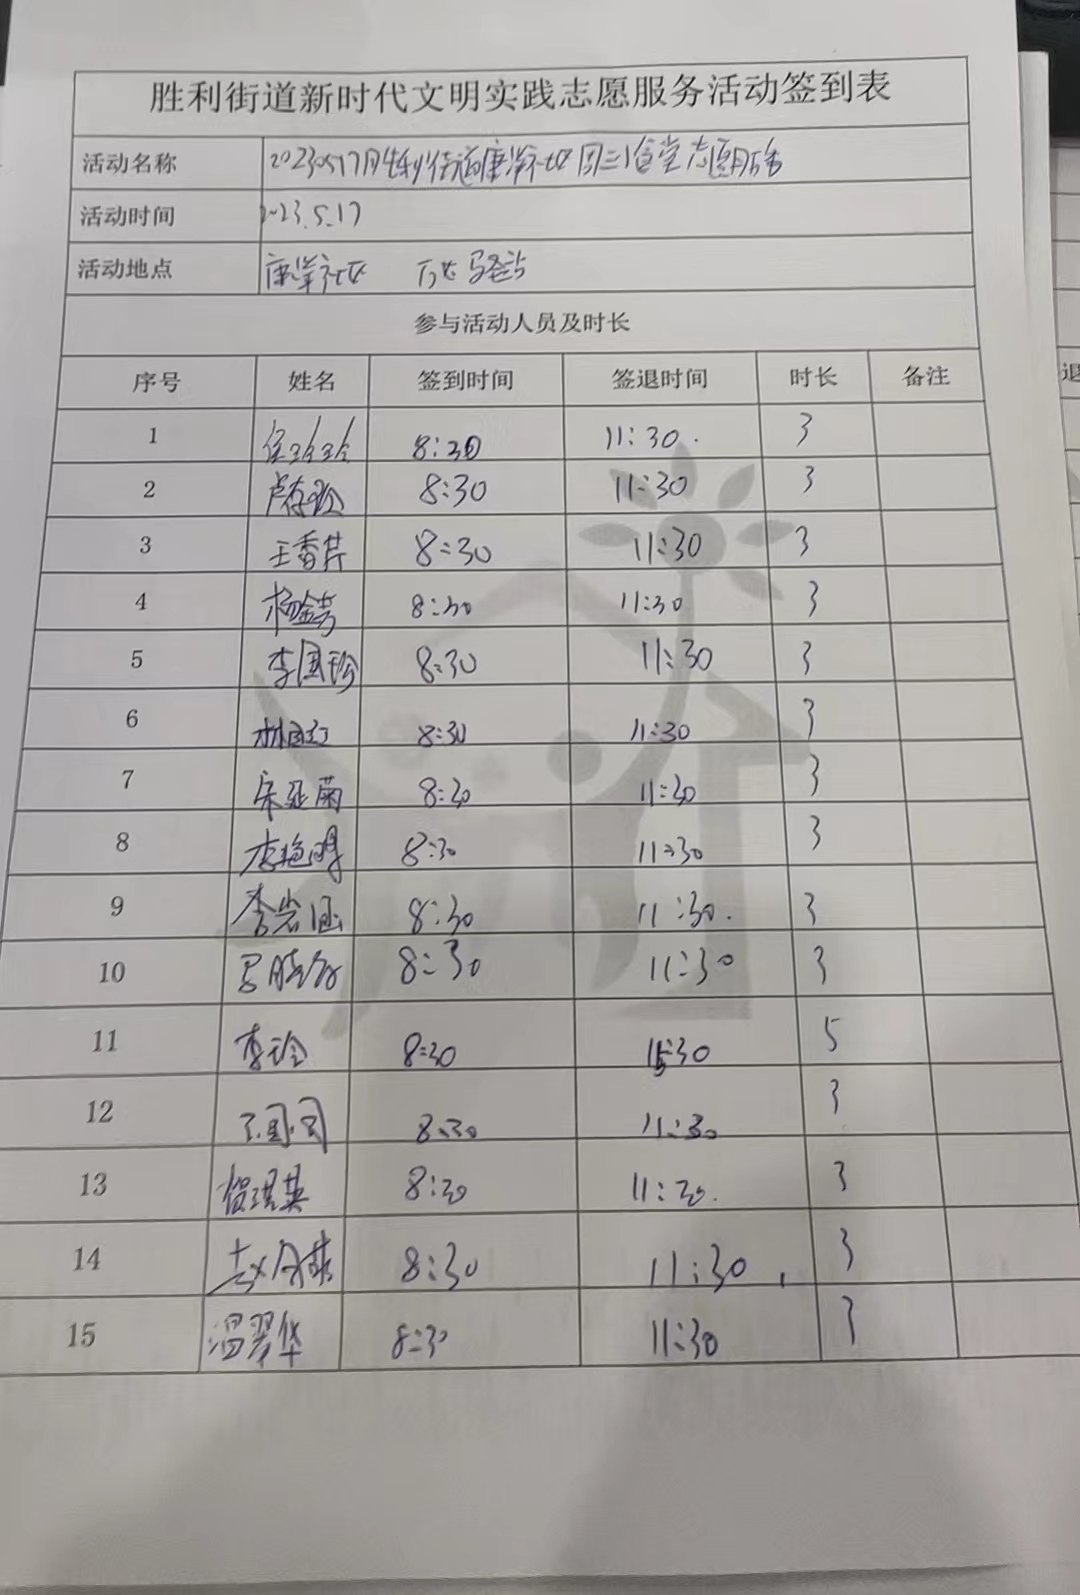 胜利街道新时代文明实践志愿服务活动签到表
活动名称 20230517胜利街道康洋社区周三食堂志愿服务
活动时间 2023.5.17
活动地点 康洋社区
参与活动人员及时长
序号 姓名 签到时间 签退时间 时长 备注
1 8:30 11:30. 3
2 8:30 11:30 3
3 王香芹 8:30 11:30 3
4 杨金芳 8:30 11:30 3
5 李国珍 8:30 11:30 3
6 林国红 8:30 11:30 3
7 宋延菊 8:30 11:30 3
8 李艳明 8:30 11:30 3
9 李岩涵 8:30 11:30. 3
10 8:30 11:30 3
11 李玲 8:30 5
12 8:30 11:30 3
13 8:30 11:30. 3
14 8:30 11:30 3
15 温翠华 8:30 11:30 3
退